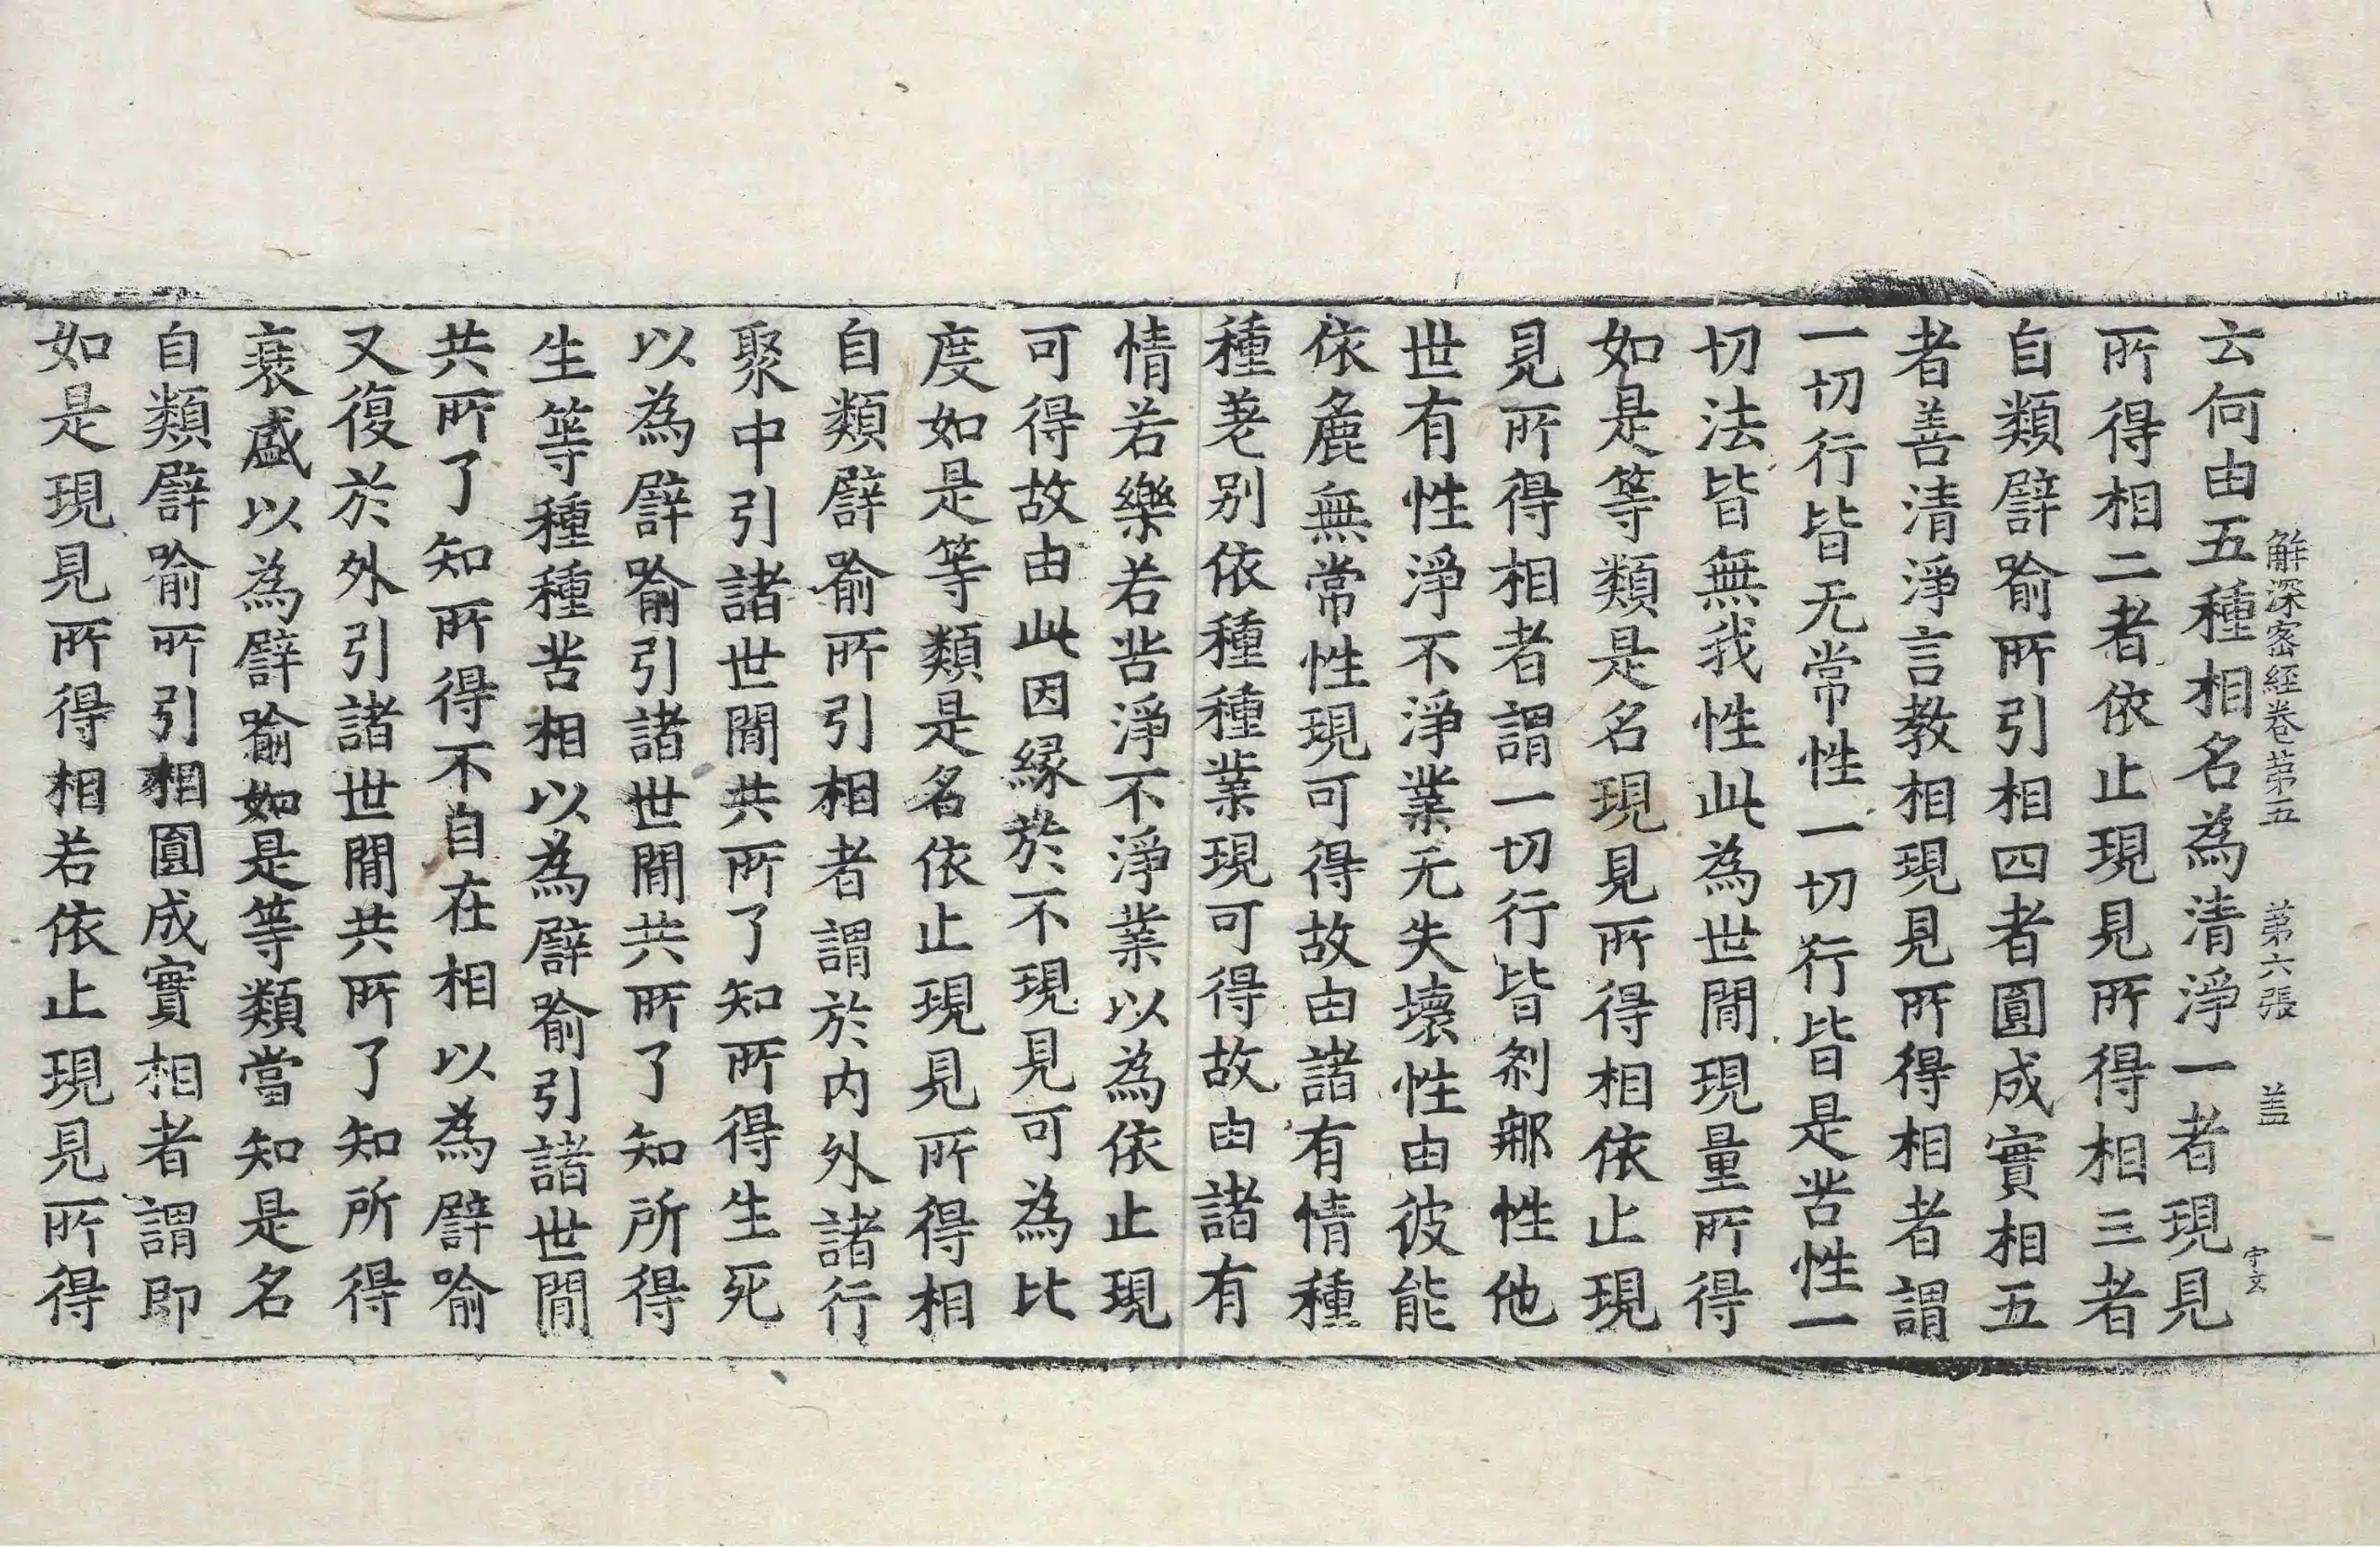 解深密經卷苐五 苐六張 盖 宇文
云何由五種相名為清淨一者現見
所得相二者依止現見所得相三者
自類譬喻所引相四者圓成實相五
者善清淨言教相現見所得相者謂
一切行皆无常性一切行皆是苦性一
切法皆無我性此為世間現量所得
如是等類是名現見所得相依止現
見所得相者謂一切行皆刹那性他
世有性淨不淨業无失壞性由彼能
依麁無常性現可得故由諸有情種
種差别依種種業現可得故由諸有
情若樂若苦淨不淨業以為依止現
可得故由此因縁於不現見可為比
度如是等類是名依止現見所得相
自類譬喻所引相者謂於内外諸行
聚中引諸世間共所了知所得生死
以為譬喻引諸世間共所了知所得
生等種種苦相以為譬喻引諸世間
共所了知所得不自在相以為譬喻
又復於外引諸世間共所了知所得
衰盛以為譬喻如是等類當知是名
自類譬喻所引相圓成實相者謂即
如是現見所得相若依止現見所得